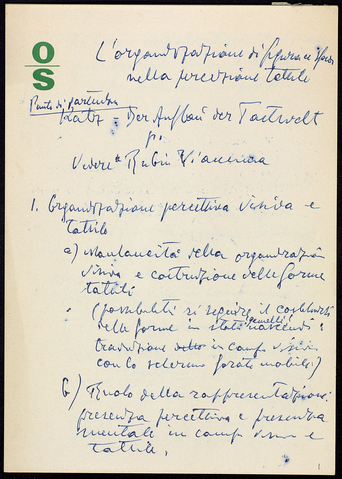 O
S
L'organizzazione di figura e sfondo
nella percezione tattile
Punto di partenza
Katz = Der Aufbau der Tastwelt
p.
Vedere Rubin
1. Organizzazione percettiva visiva e
tattile
a) Immediatezza della organizzazione
visiva e costruzione delle forme
tattili
(possibilità di seguire il costituirsi
delle forme in stati nascendi:
traduzione in campo visivo
con lo schermo forato mobile)
b) Ruolo della rappresentazione:
presenza percettiva e presenza
mentale in campo visivo e
tattile.
1